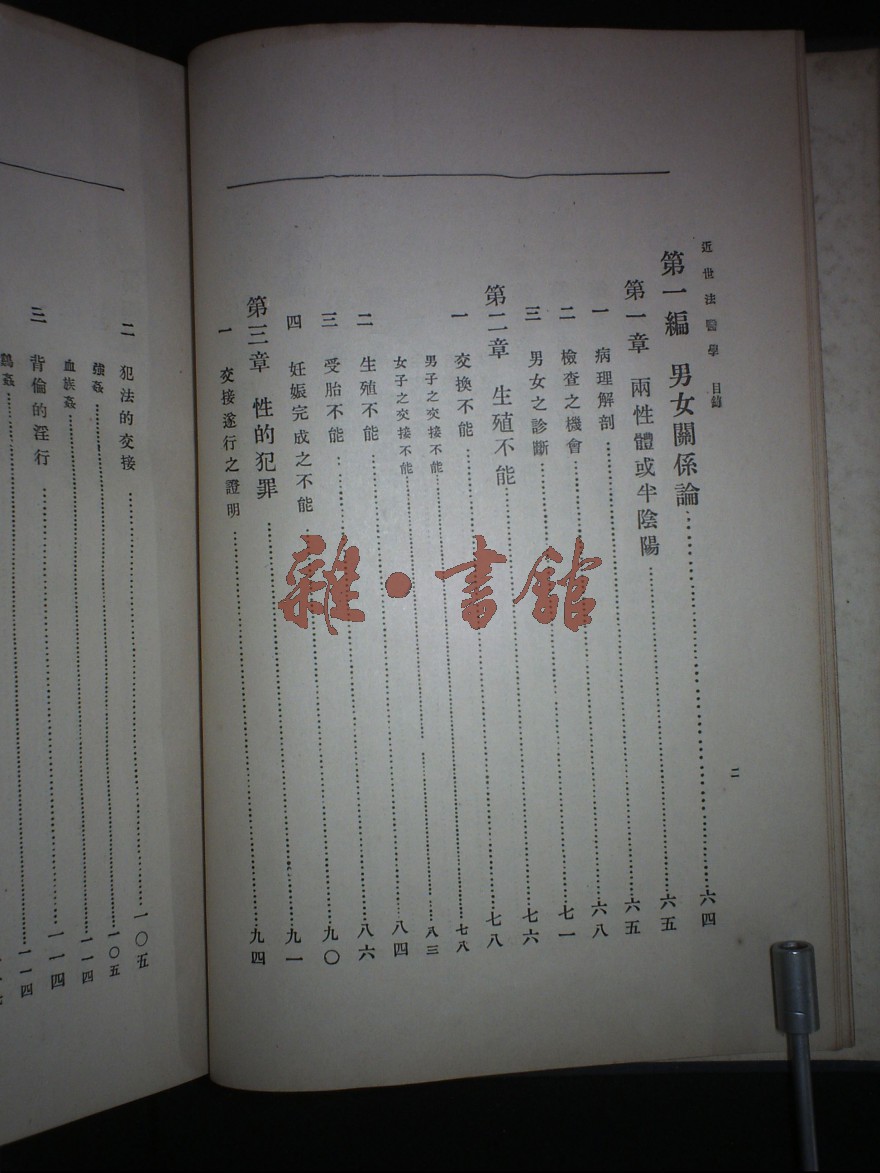 近世法醫學 目錄
第一編 男女關係論……六四
第一章 兩性體或半陰陽……六五
一 病理解剖……六五
二 檢查之機會……六八
三 男女之診斷……七一
第二章 生殖不能……七六
一 交換不能……七八
男子之交接不能……七八
女子之交接不能……八三
二 生殖不能……八四
三 受胎不能……八六
四 妊娠完成之不能……九〇
第三章 性的犯罪……九一
一 交接遂行之證明……九四
二
二 犯法的交接……一〇五
強姦……一〇五
血族姦……一一四
三 背倫的淫行……一一四
鷄姦……一一四
雜·書館